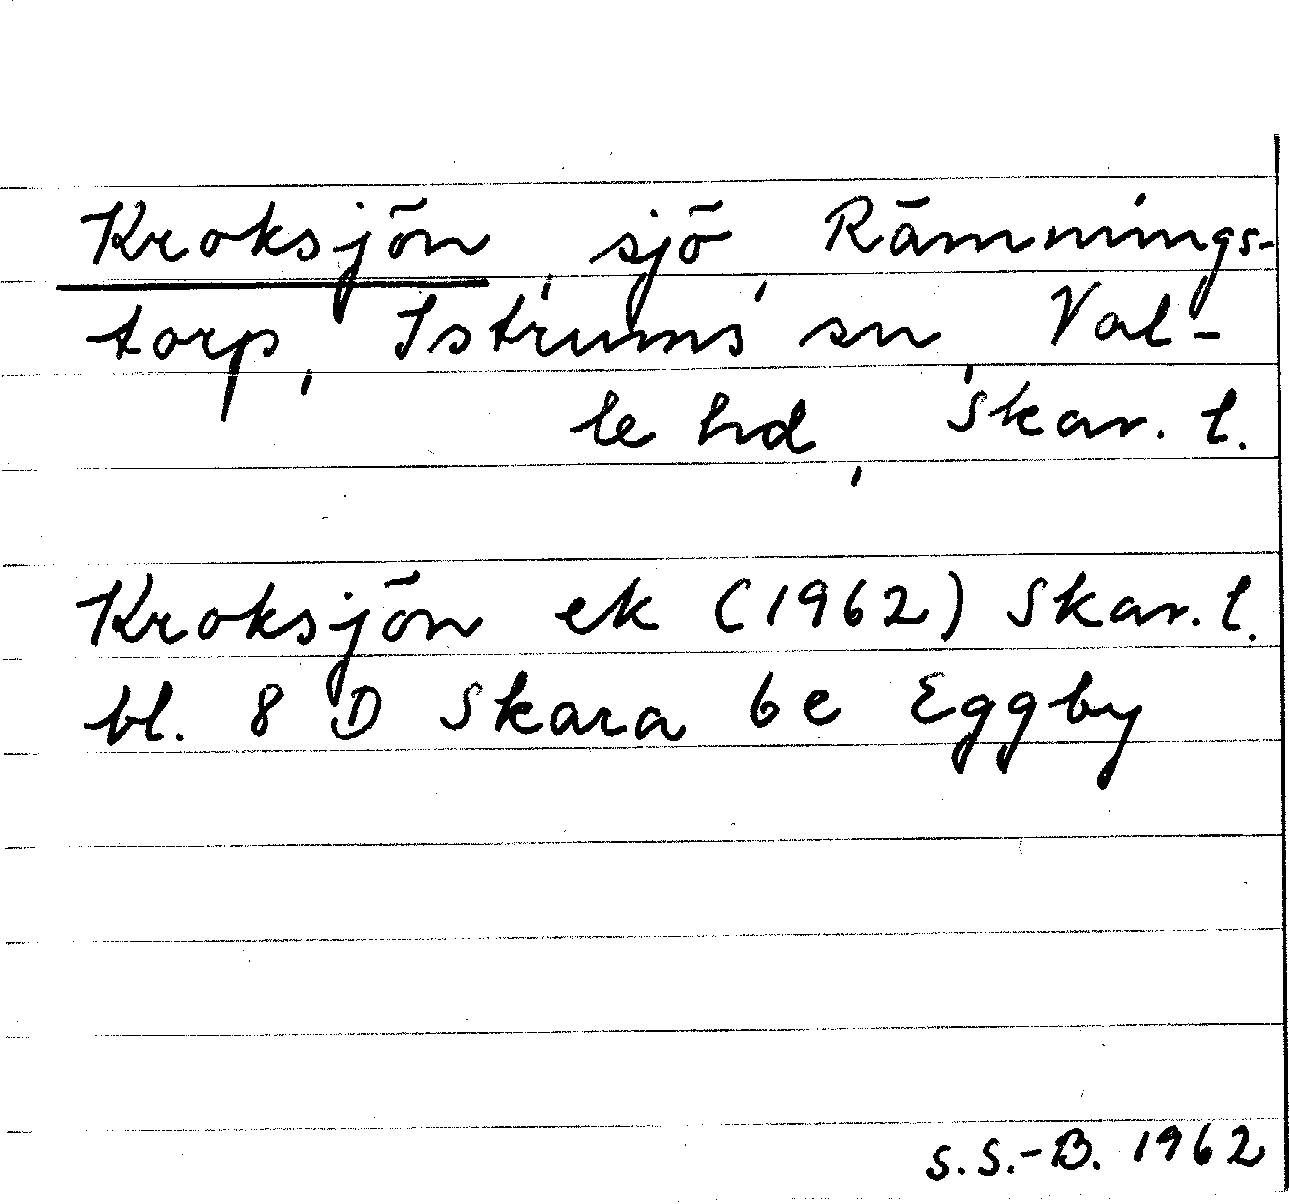 Kroksjön, sjö, Rämnings-
torp, Istrums sn, Val-
le hd, Skar. l.
Kroksjön ek (1962) Skar. l.
bl. 8 D Skara 6e Eggby
S.S.-B. 1962